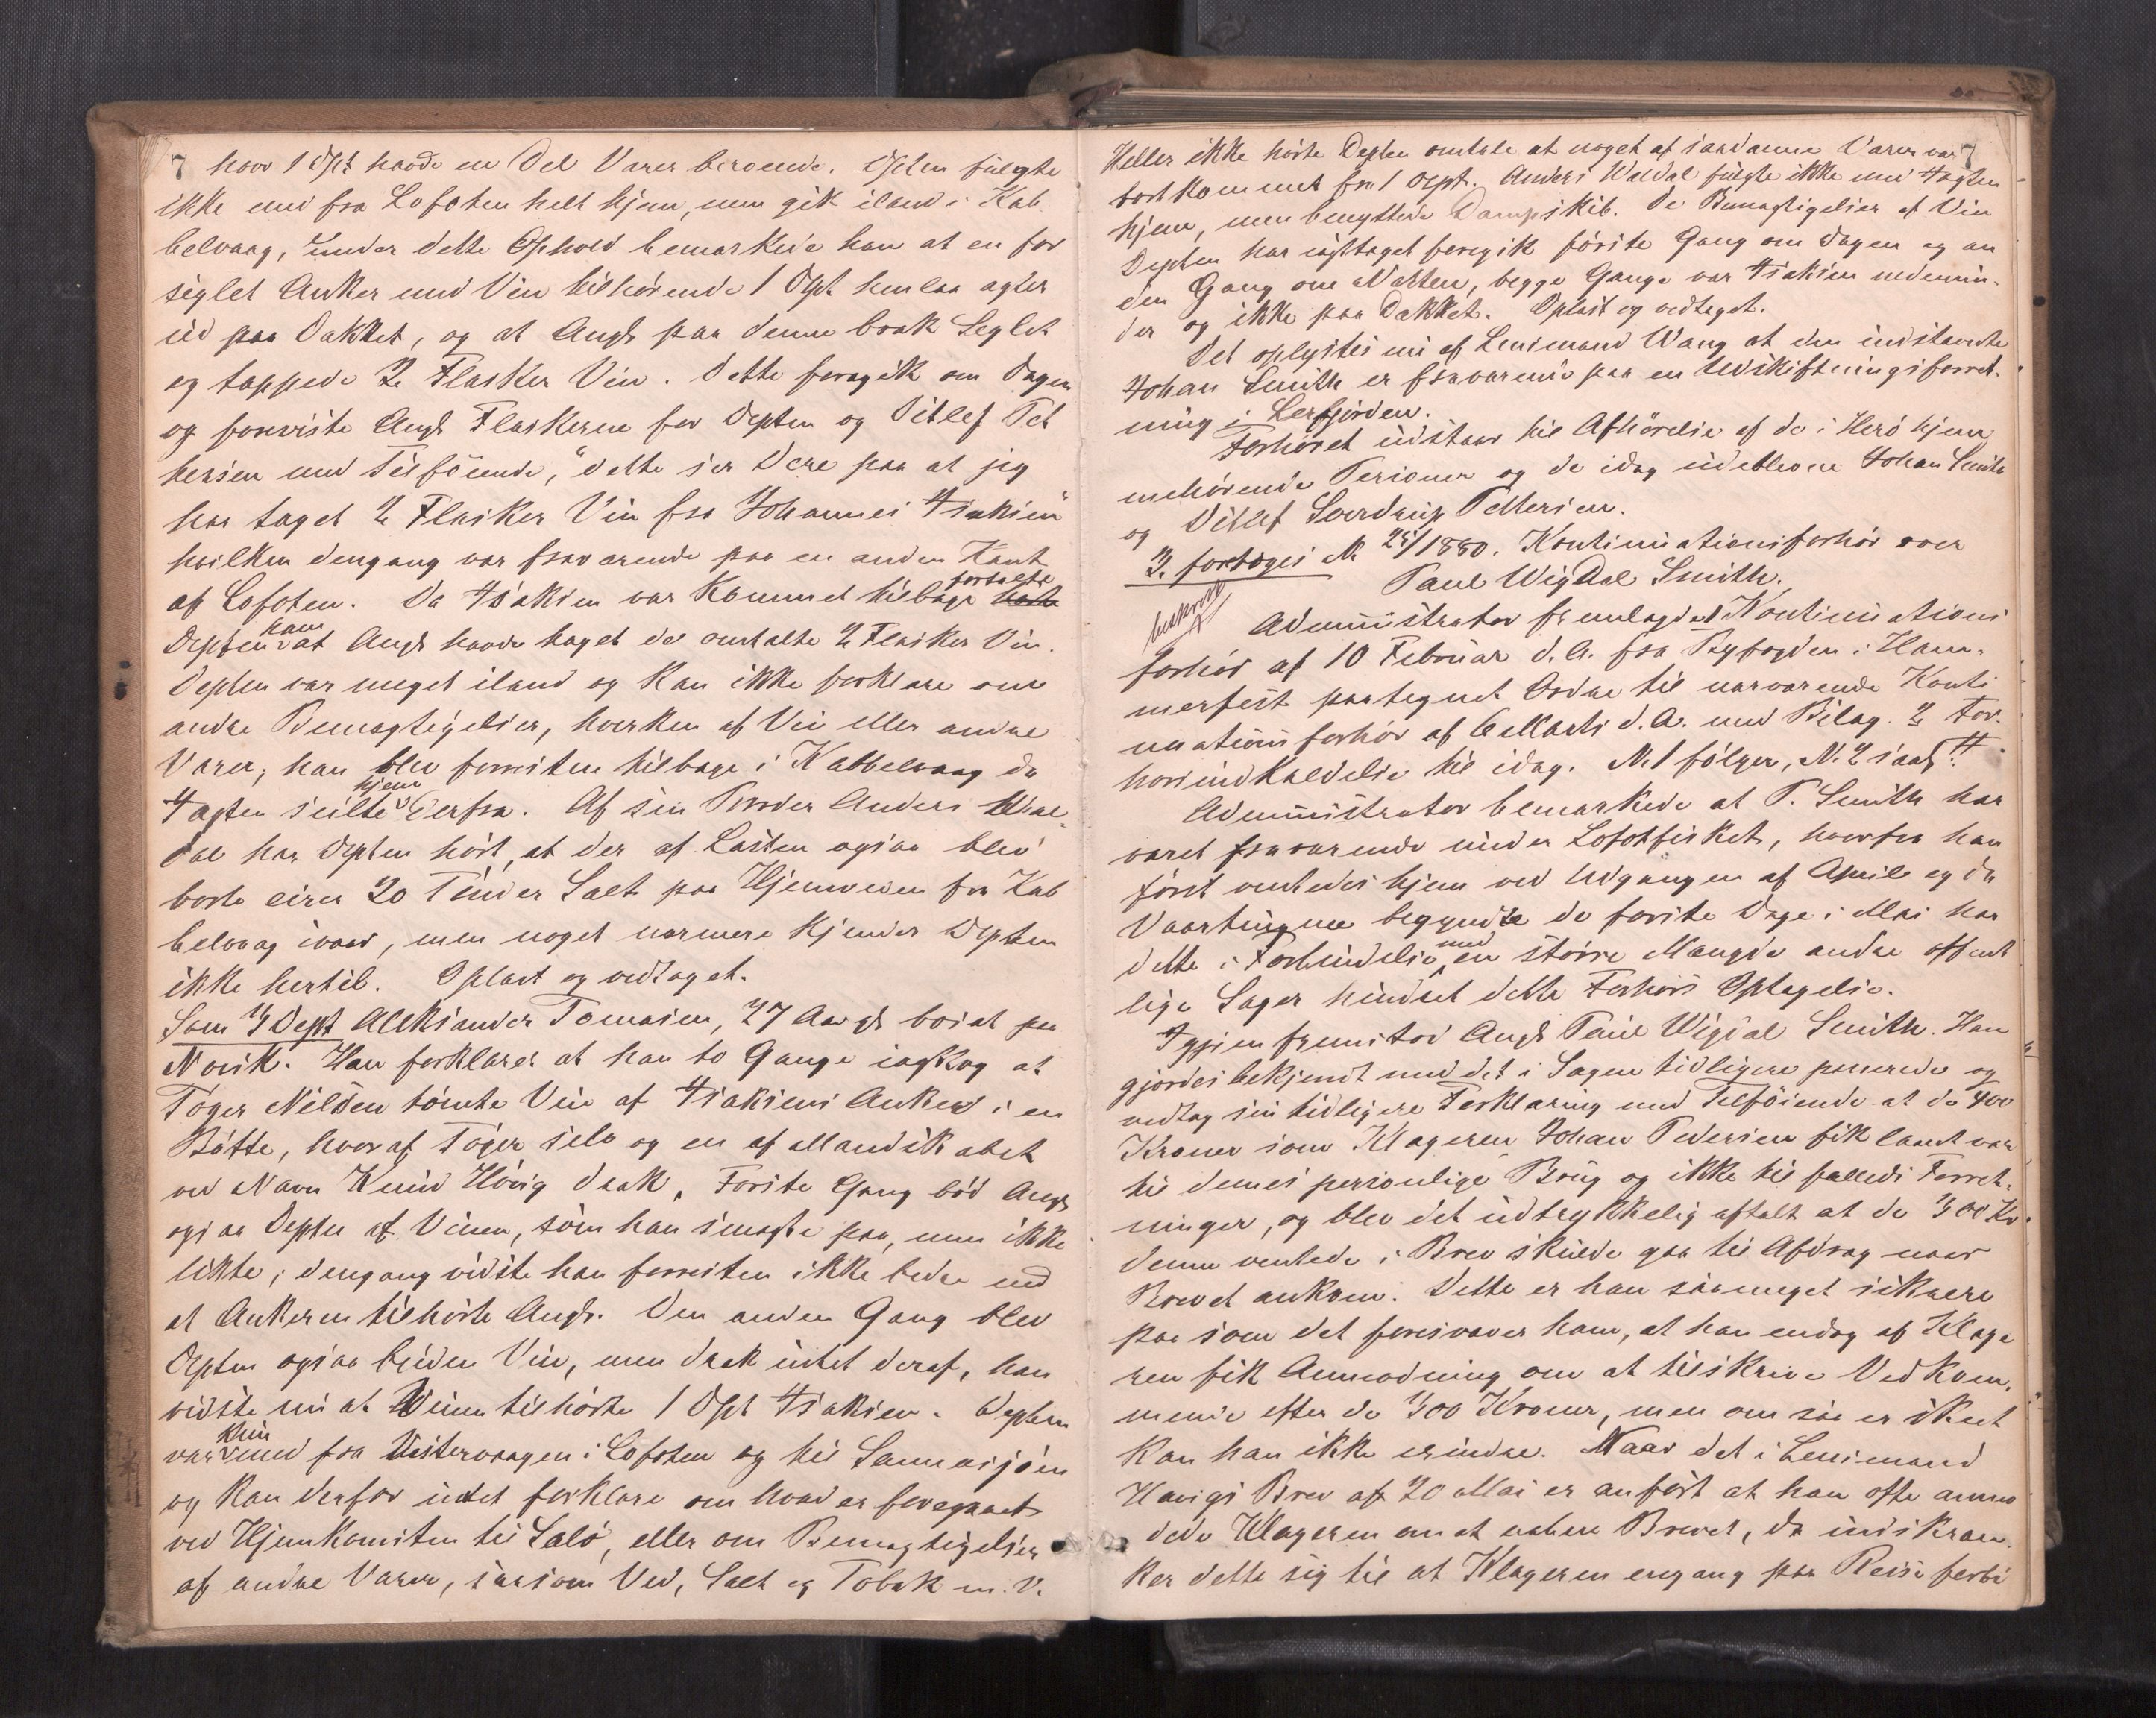 7
hvor 1 Dpt havde en Del Varer beroende. Dpten fulgte
ikke med fra Lofoten helt hjem, men gik iland i Kab
belvaag, under dette Ophold bemærkede han at en for
seglet Anker med Vin tilhørende 1 Dpt henlaa agter
ud paa Dækket, og at Angh paa denne brak Seglet
og tappede 2 Flasker Vin. Dette foregik om Dagen
og foreviste Angh Flaskerne for Depten og Ditlef Pet
tersen med Tilføiende, "dette ser Dere paa at jeg
har taget 2 Flasker Vin fra Johannes Isaksen"
hvilken dengang var fraværende paa en anden Kant
af Lofoten. Da Isaksen var kommet tilbage fortalte
Depten ham at Angh havde taget de omtalte 2 Flasker Vin.
Depten var meget iland og kan ikke forklare om
andre Bemægtigelser, hverken af Vin eller andre
Varer, han blev forresten tilbage i Kabbelvaag da
Jagten seilte hjem derfra. Af sin Broder Anders Wal
dal har Depten hørt, at der af Lasten ogsaa blev
borte circa 20 Tønder Salt paa Hjemveien fra Kab
belvaag ivaar, men noget nærmere kjender Depten
ikke hertil. Oplæst og vedtaget.
Som 4 Dept Aleksander Tomasen, 27 Aar gl. bosat paa
Norvik. Han forklarer at han to Gange iagttog at
Tøger Nilsen tømte Vin af Isaksens Anker i en
Bøtte, hvoraf Tøger selv og en af Mandskabet
ved Navn Knud Høvig drak. Første Gang bød Angh
ogsaa Depten af Vinen, som han smagte paa, men ikke
likte; dengang vidste han forresten ikke bedre end
at Ankeren tilhørte Angh. Den anden Gang blev
Depten ogsaa buden Vin, men drak intet deraf, han
vidste nu at Vinen tilhørte 1 Dpt Isaksen. Depten
var kun med fra Østervaagen i Lofoten og til Sannesjøen
og kan derfor intet forklare om hvad er foregaaet
ved Hjemkomsten til Salø, eller om Bemægtigelser
af andre Varer, saasom Ved, Salt og Tobak m. V.
7
Heller ikke hørte Depten omtale at noget af saadanne Varer var
bortkommet fra 1 Dept. Anders Waldal fulgte ikke med Jagten
hjem, men benyttede Dampskib. De Bemægtigelser af Vin
Depten har iagttaget foregik første Gang om Dagen og an
den Gang om Natten, begge Gange var Isaksen nedenun-
der og ikke paa Dækket. Oplæst og vedtaget.
Det oplystes nu af Lensmand Wang at den indstævnte
Johan Smith er fraværende paa en Udskiftningsforret-
ning i Leirfjorden.
Forhøret udstaar til Afhørelse af de i Herø hjem
mehørende Personer og de idag udeblevne Johan Smith
og Ditlef Sverdrup Pettersen.
3. foretoges N. 25/1880. Kontinuationsforhør over
Paul Wigdal Smith.
beskrevet
Administrator fremlagde 1 Kontinuations
forhør af 10 Februar d. A. fra Byfogden i Ham-
merfest paategnet Ordre til nærværende Konti
nuationsforhør af 6 Marts d. A. med Bilag. 2 For-
horsindkaldelse til idag. N. 1 følger, N. 2 saal:
Administrator bemærkede at P. Smith har
været fraværende under Lofotfisket, hvorfra han
først ventedes hjem ved Udgangen af April og da
Vaartingene begyndte de første Dage i Mai har
dette i Forbindelse med en større Mængde andre offent
lige Sager hindret dette Forhørs Optagelse.
Igjen fremstod Angh Paul Wigdal Smith. Han
gjordes bekjendt med det i Sagen tidligere passerede og
vedtog sin tidligere Forklaring med Tilføiende at de 400
Kroner som Klageren Johan Pedersen fik laant var
til dennes personlige Brug og ikke til fælleds Forret-
ninger, og blev det udtrykkelig aftalt at de 400 Kr
denne ventede i Brev skulde gaa til Afdrag naar
Brevet ankom. Dette er han saameget sikrere
paa som det foresvæver ham, at han endog af Klage
ren fik Anmodning om at tilskrive Vedkom-
mende efter de 400 Kroner, men om saa er skeet
kan han ikke erindre. Naar det i Lensmand
Havigs Brev af 20 Mai er anført at han ofte anmo
dede Klageren om at aabne Brevet, da indskræn
ker dette sig til at Klageren engang paa Reise forbi